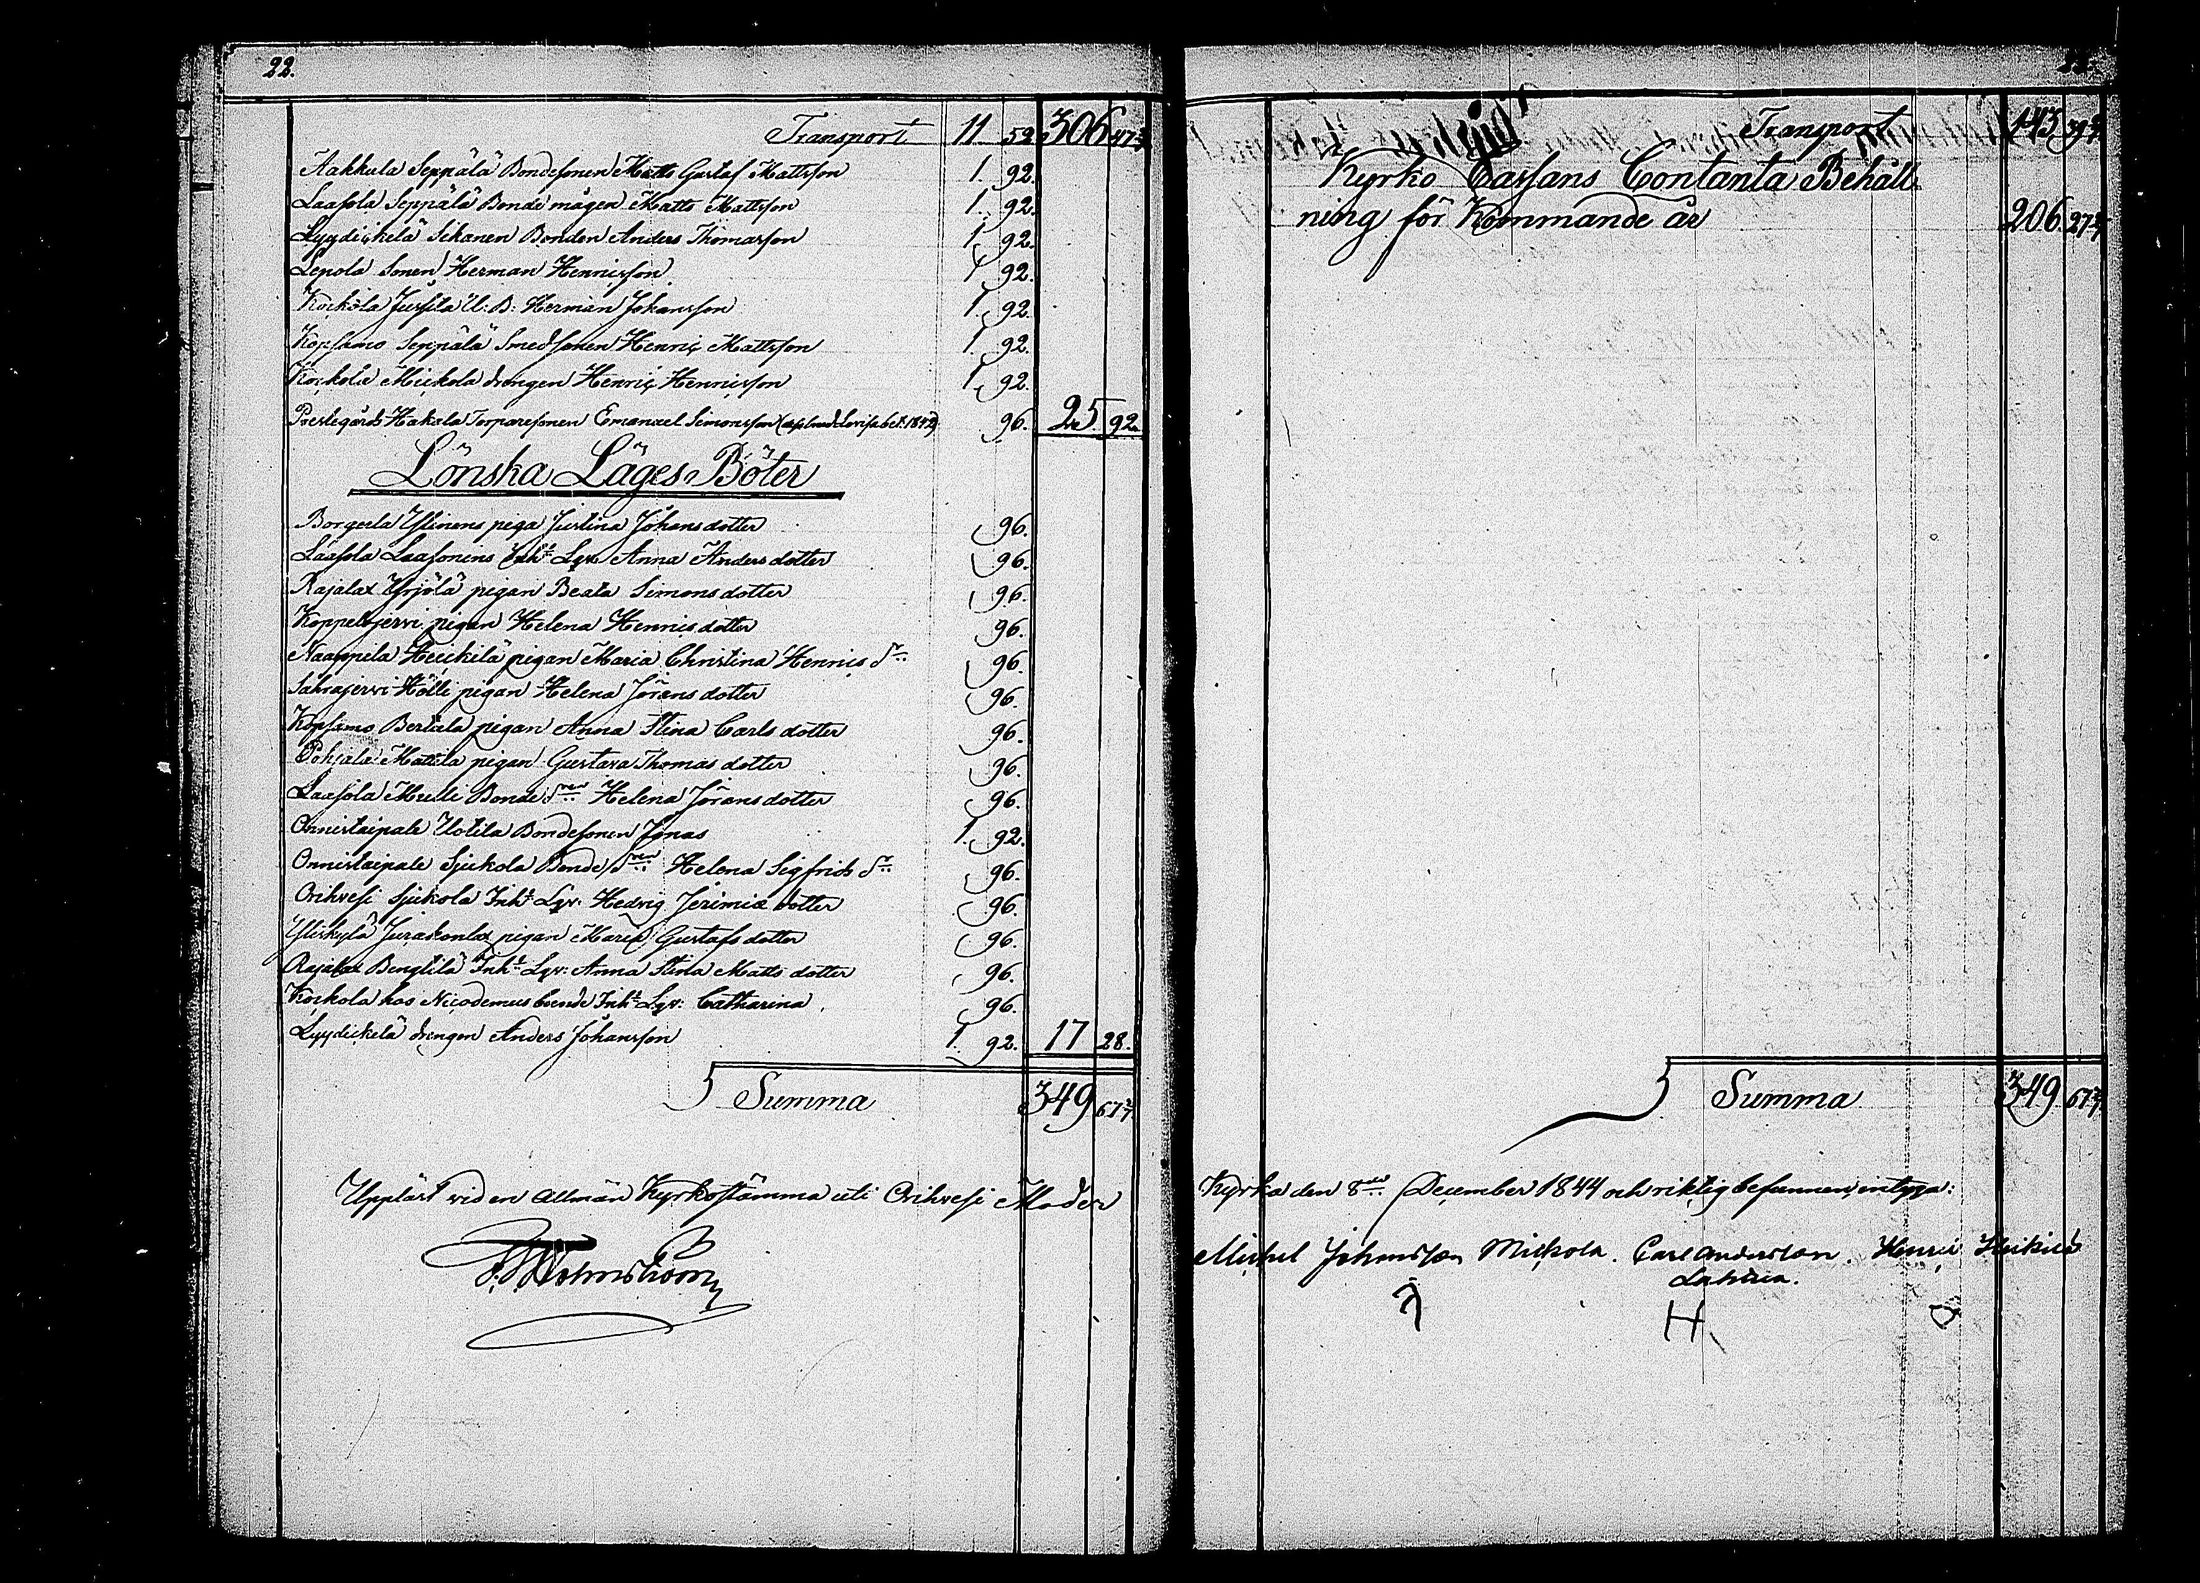 22.
Transport 11 52 306 47 3/7
Aakkula Seppälä Bondesonen Matts Gustaf Mattsson 1. 92.
Laasola Seppälä Bonde mågen Matts Mattsson 1. 92.
Lyydickelä Sikanen Bonden Anders Thomasson 1. 92.
Lepola Sonen Herman Henricsson 1 92.
Kockola Jussila U: B: Herman Johansson 1. 92.
Kopsamo Seppälä Smedsonen Henric Mattsson 1. 92.
Kockola Mickola drengen Henric Henricsson 1. 92.
Prestegårds Hakala Torparesonen Emanuel Simonsson 1842) 96. 25. 92.
Lönska Läges Böter
Borgola Ylinens piga Justina Johans dotter 96.
Laasola Laasonens Inh: Lqv: Anna Anders dotter 96.
Rajalax Yrjölä pigan Beata Simons dotter 96.
Koppelojervi pigan Helena Henrics dotter 96.
Naappila Heickilä pigan Maria Christina Henrics dr: 96.
Sahrajervi Hölli pigan Helena Jörans dotter 96.
Kopsamo Bertula pigan Anna Stina Carls dotter 96.
Pohjala Mattila pigan Gustava Thomas dotter 96.
Laasola Mulli Bonde dren Helena Jörans dotter 96.
Onnistaipale Uotila Bondesonen Jonas 1. 92.
Onnistaipale Sjukola Bonde dren Helena Sigfrids dr: 96.
Orihvesi Sjukola Inh: Lqv: Hedvig Jeremiæ dotter 96.
Yliskylä pigan Maria Gustafs dotter 96.
Rajalax Bengtilä Inh: Lqv: Anna Stina Matts dotter 96.
Kockola hos Nicodemus bonde Inh: Lqv: Catharina 96.
Lyydickelä drengen Anders Johansson 1. 92. 17 28.
Summa 349 67 3/7
Uppläst vid en allmän Kyrkostämma uti Orihvesi Moder
Holmström
Transport 143 39
Kyrko Cassans Contanta Behåll
ning för Kommande år 206. 27
Summa 349 67 3/7
Kyrka den 8de December 1844 och riktig befunnen, intyga:
Michel Johansson Mickola. Carl Andersson. Henric Heikild
Lahtua.
H